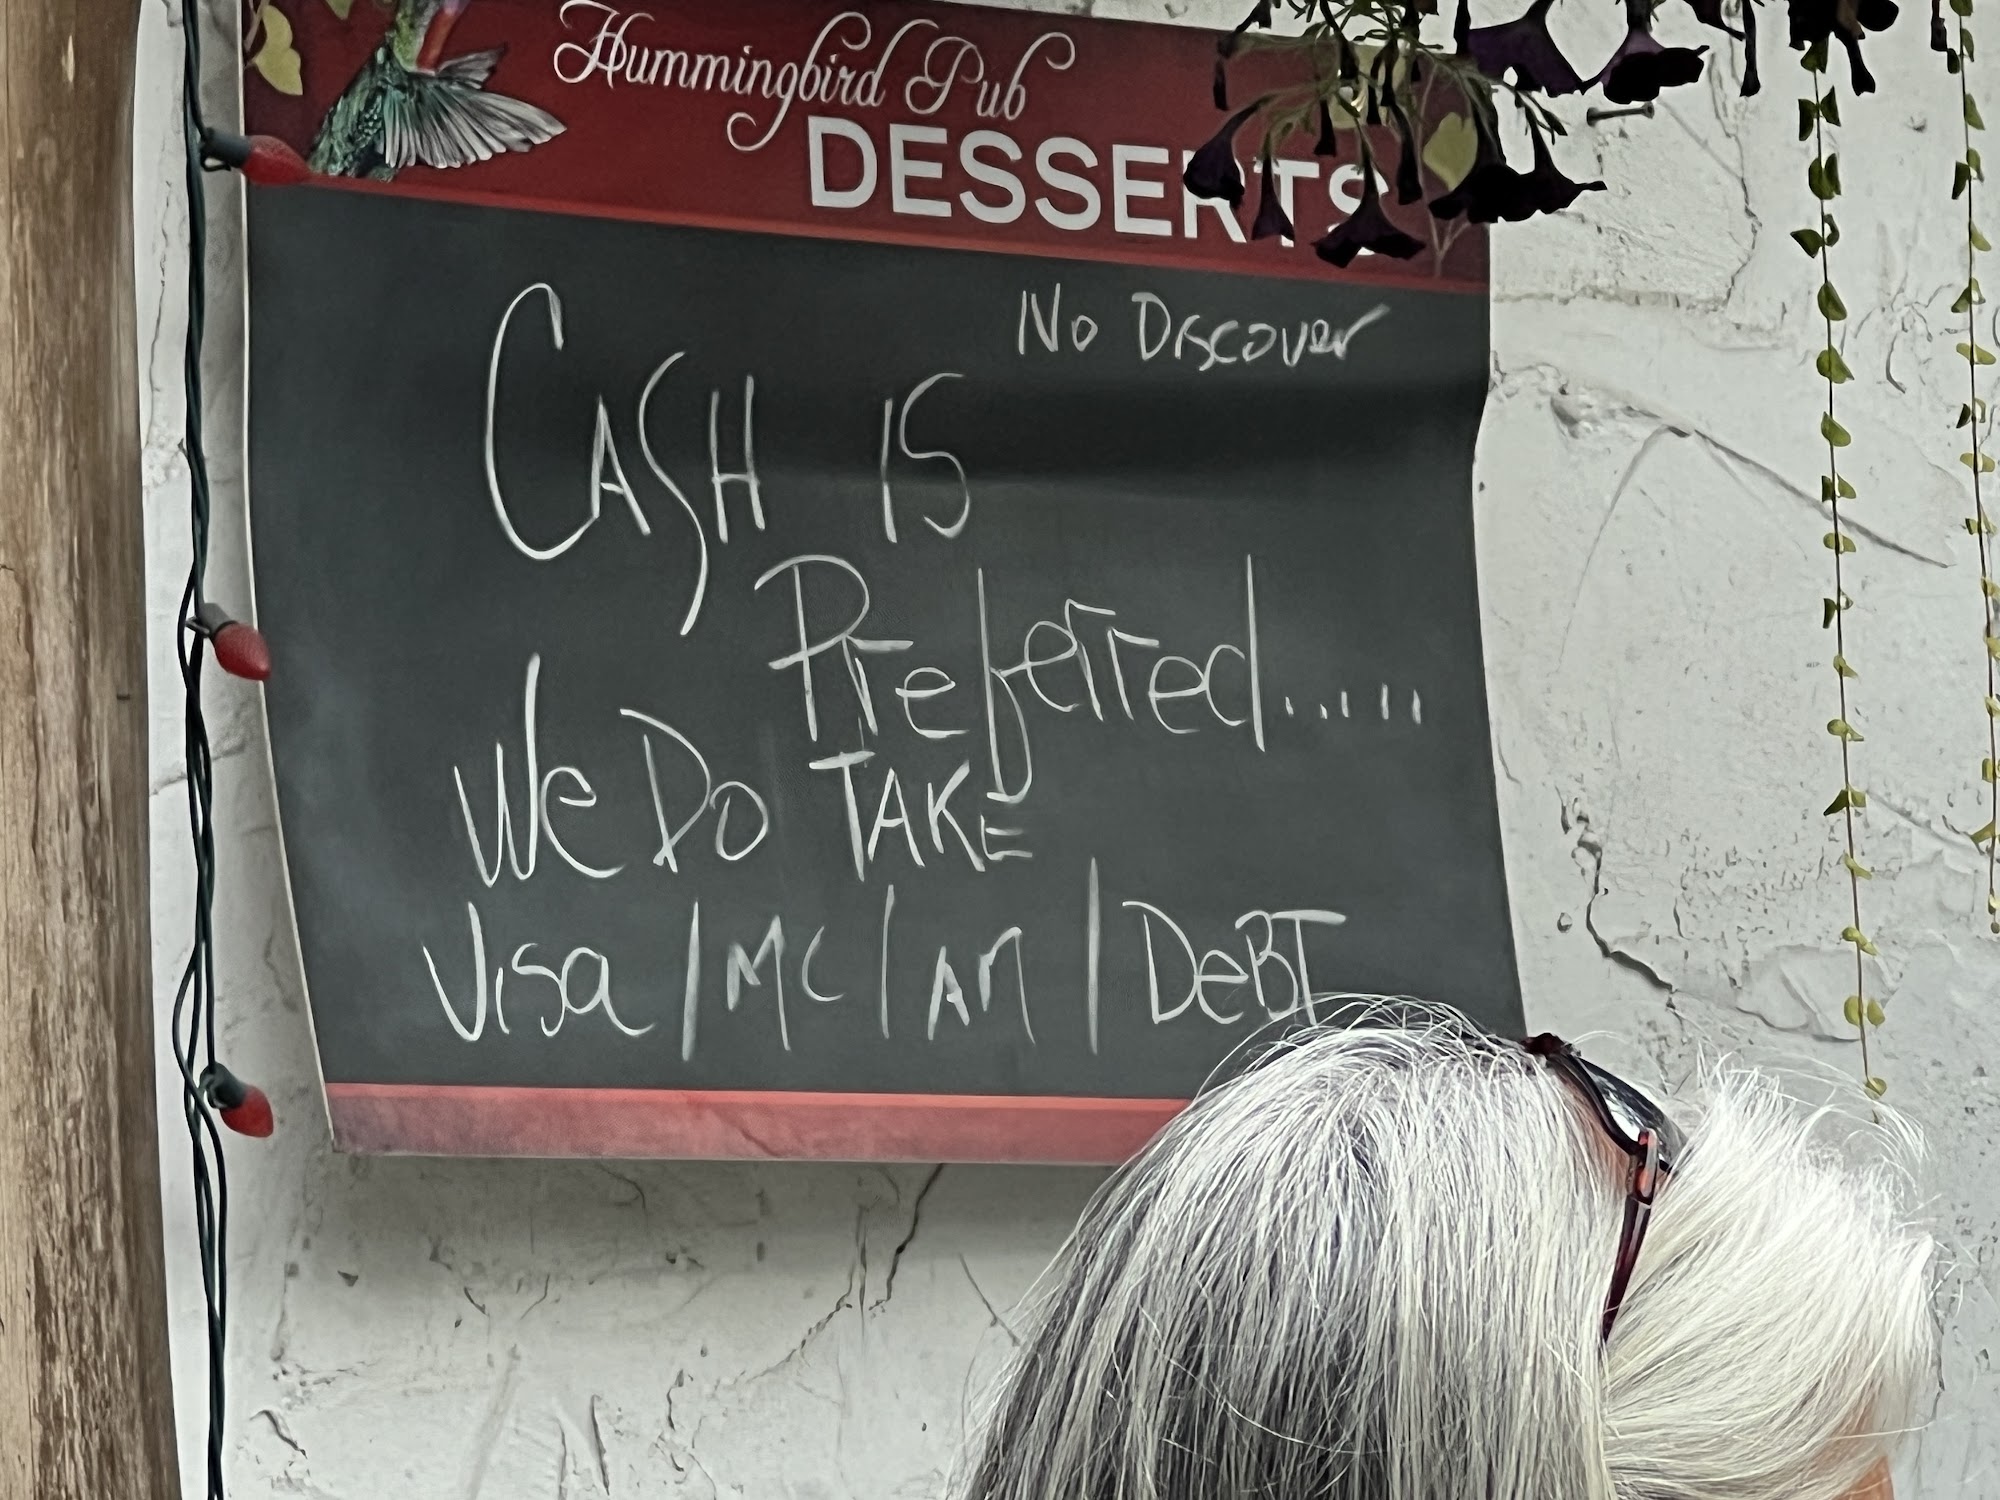 Hummingbird Pub
DESSERTS
No Discover
CASH IS
Preferred.....
We Do TAKE
Visa / MC / AM / DeBT